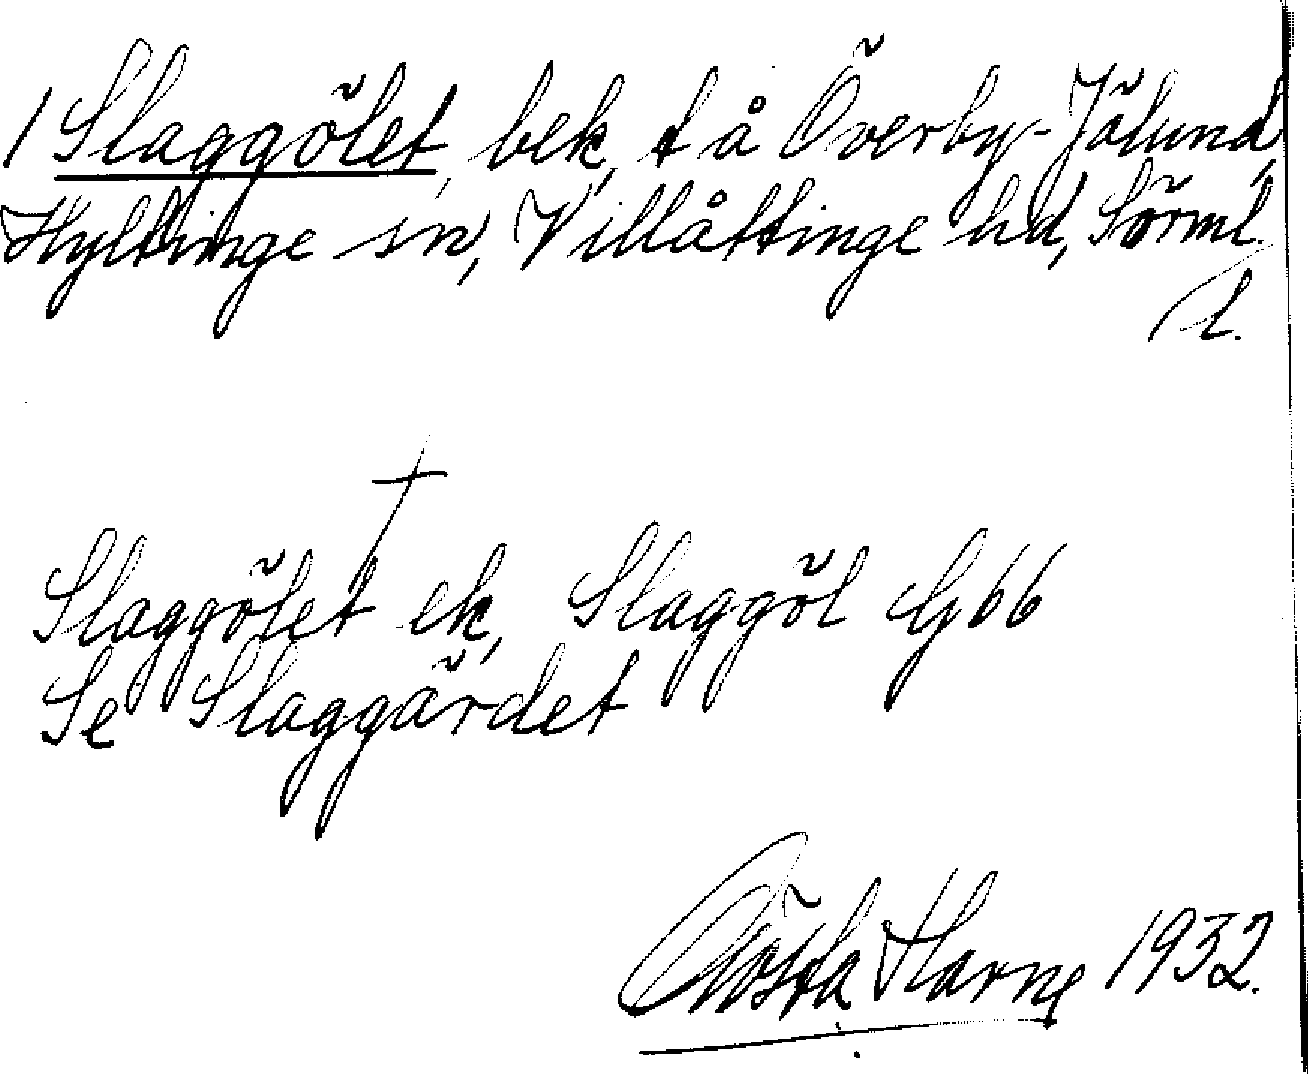 1 Slaggölet, bek, t å Överby-Jälund,
Hyltinge sn, Villåttinge hd, Sörml.
l.
Slaggölet ek, Slaggöl G 66
Se Slaggärdet
Gösta Harne 1932.